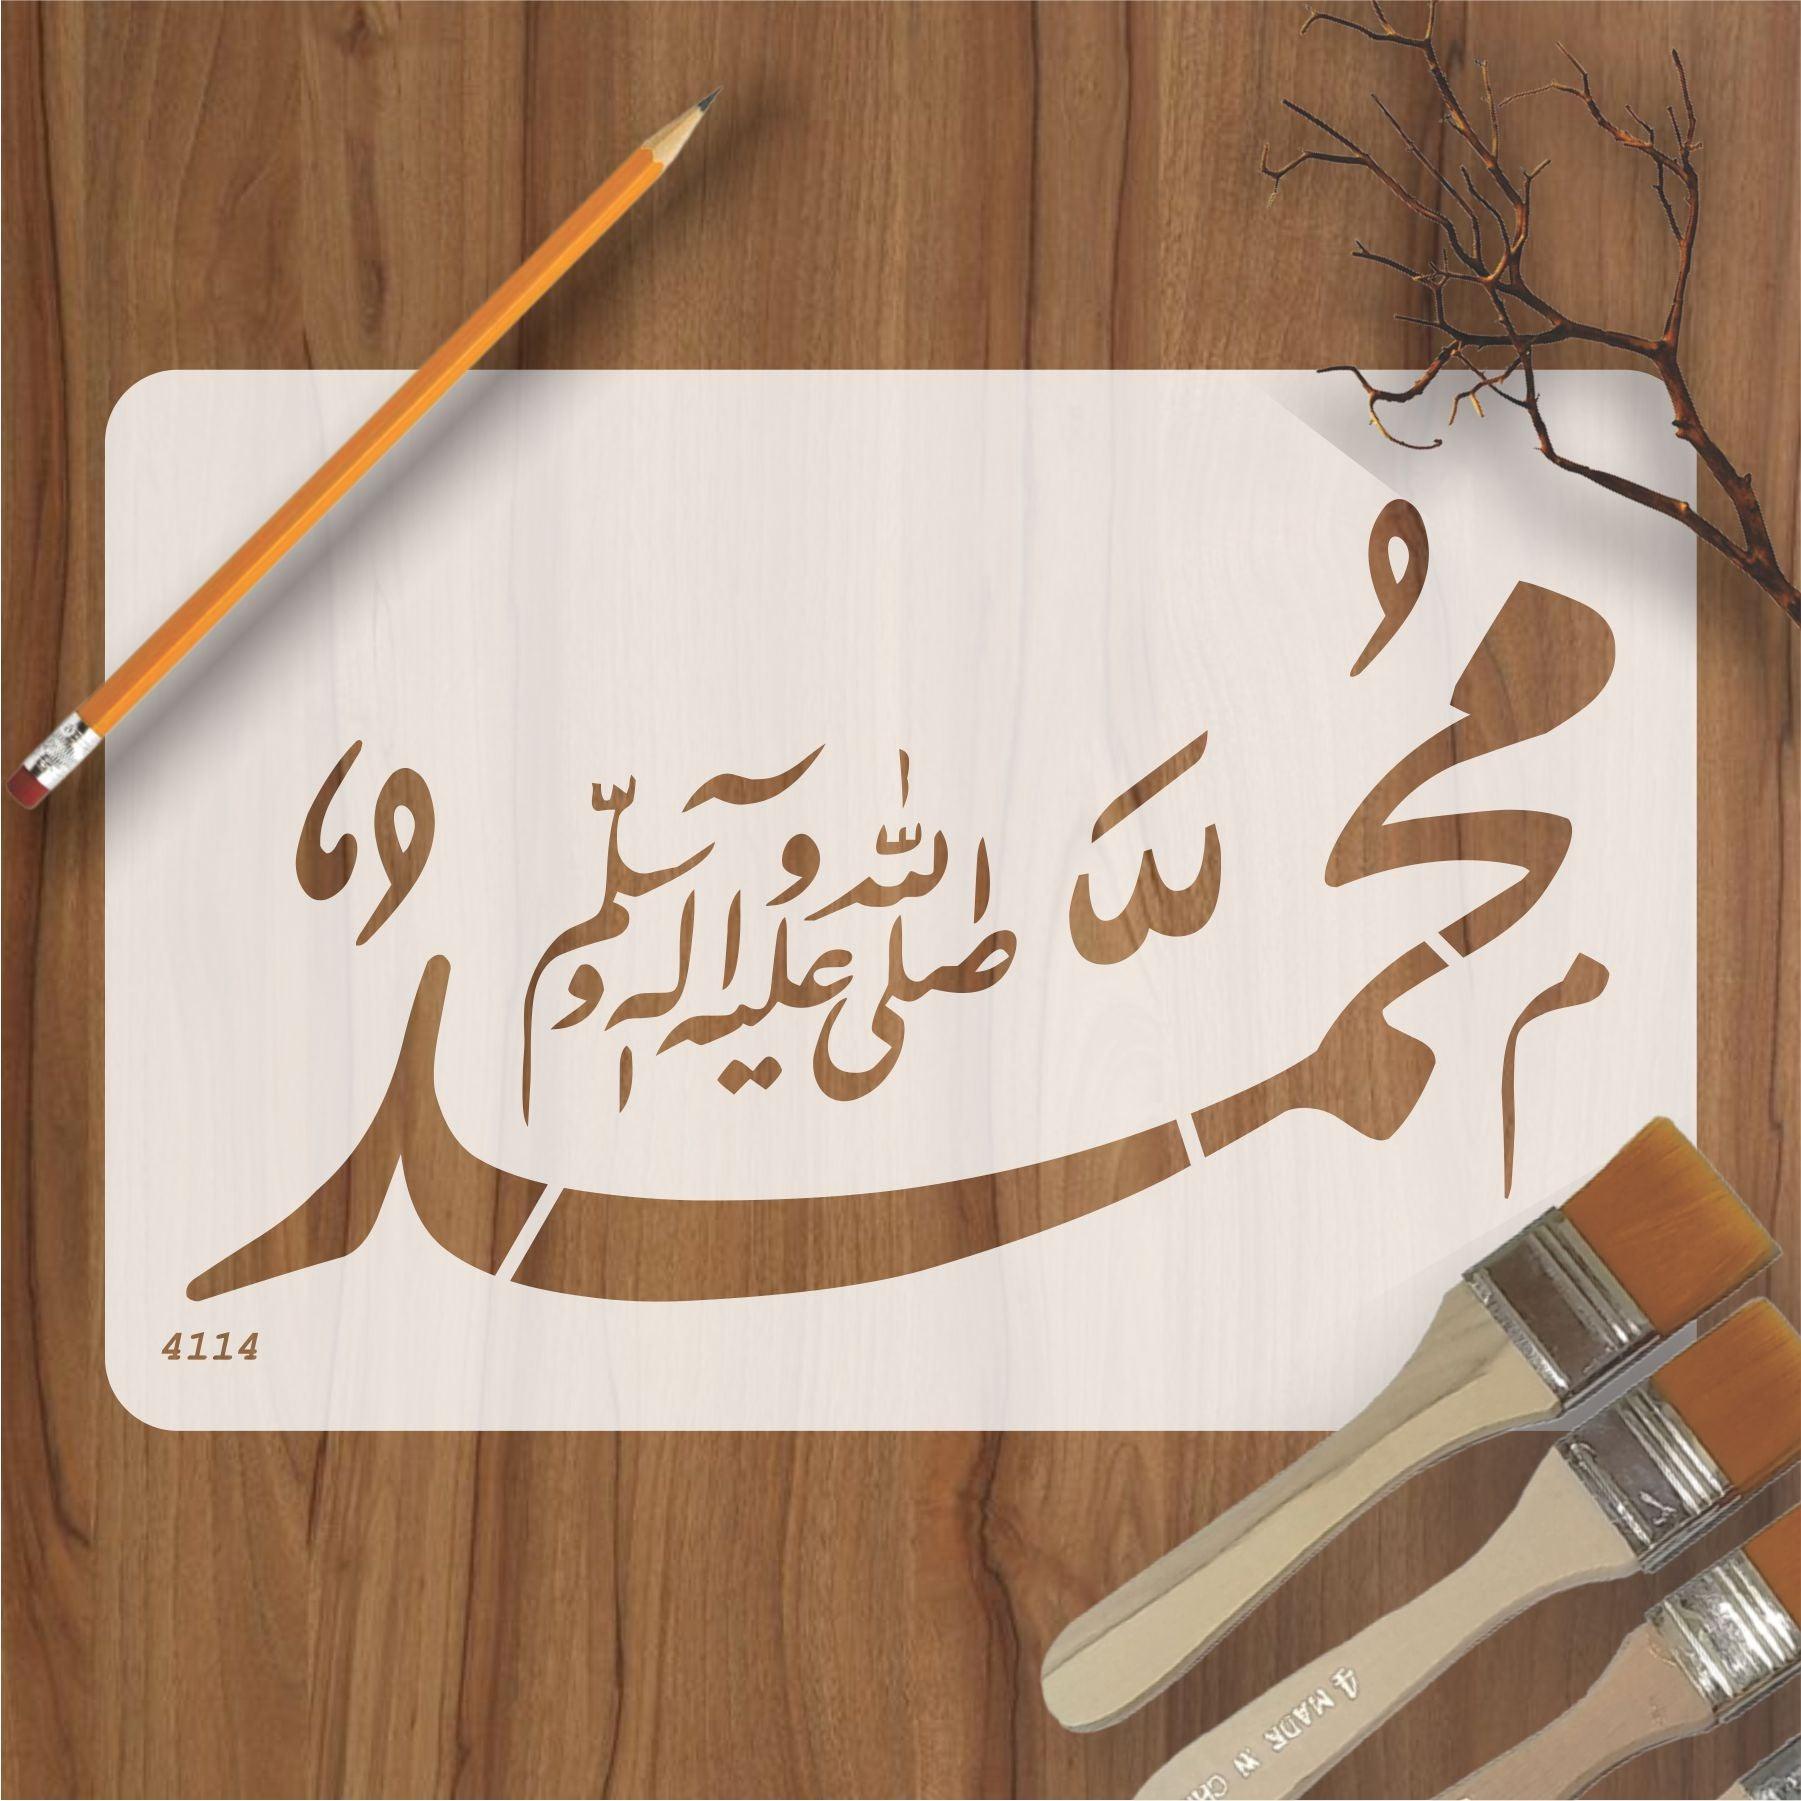 مُحَمَّدٌ
صلى الله عليه واله وسلم
4114
4 MADE IN CHI